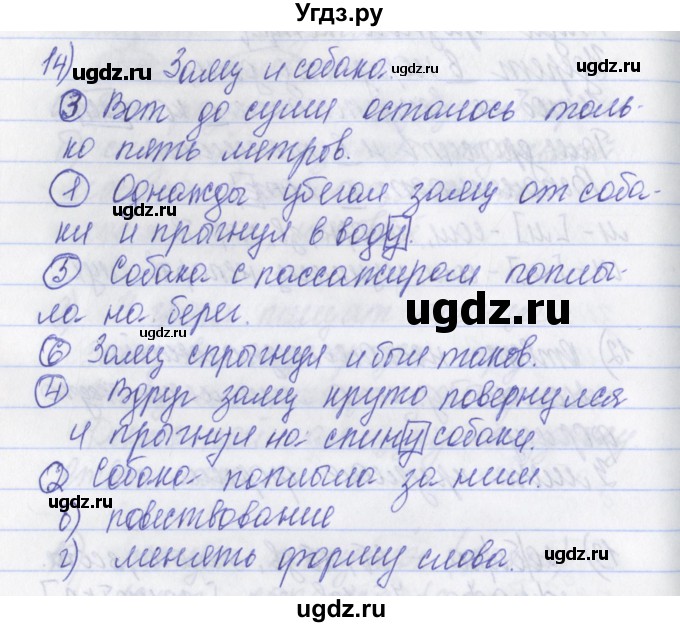 Угдз.ру
14) Заяц и собака.
③ Вот до суши осталось толь-
ко пять метров.
① Однажды убегал заяц от соба-
ки и прыгнул в воду.
⑤ Собака с пассажиром поплы-
ла на берег.
⑥ Заяц спрыгнул и был таков.
④ Вдруг заяц круто повернулся
и прыгнул на спину собаки.
② Собака поплыла за ним.
в) повествование
г) менять форму слова.
ugdz.ru
ugdz.ru
ugdz.ru
ugdz.ru
ugdz.ru
ugdz.ru
ugdz.ru
ugdz.ru
ugdz.ru
ugdz.ru